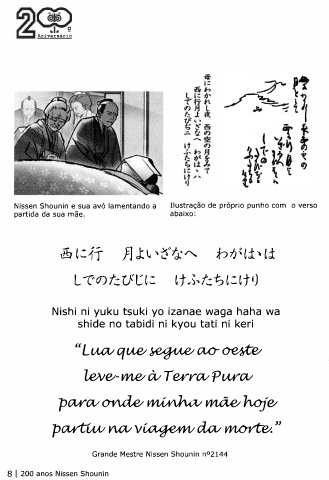 200º
Aniversário
母にわかれし夜 西の空の月をみて
西に行月よいざなへ わがはゝハ
しでのたびぢニ けふたちにけり
Nissen Shounin e sua avó lamentando a
partida da sua mãe.
Ilustração de próprio punho com o verso
abaixo:
西に行 月よいざなへ わがはゝは
しでのたびじに けふたちにけり
Nishi ni yuku tsuki yo izanae waga haha wa
shide no tabidi ni kyou tati ni keri
“Lua que segue ao oeste
leve-me à Terra Pura
para onde minha mãe hoje
partiu na viagem da morte.”
Grande Mestre Nissen Shounin nº2144
8 | 200 anos Nissen Shounin